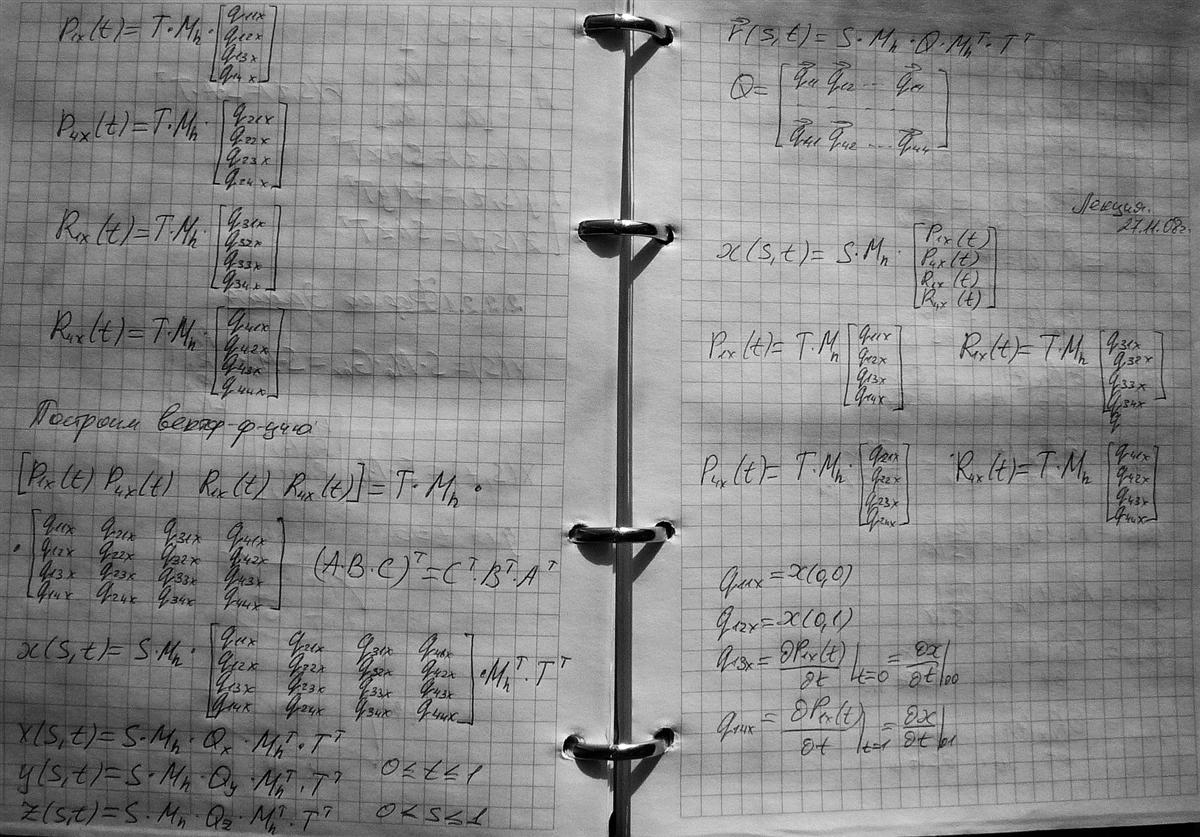 P₁ₓ(t) = T·Mₕ·[q₁₁ₓ
q₁₂ₓ
q₁₃ₓ
q₁₄ₓ]
P₄ₓ(t) = T·Mₕ·[q₂₁ₓ
q₂₂ₓ
q₂₃ₓ
q₂₄ₓ]
R₁ₓ(t) = T·Mₕ·[q₃₁ₓ
q₃₂ₓ
q₃₃ₓ
q₃₄ₓ]
R₄ₓ(t) = T·Mₕ·[q₄₁ₓ
q₄₂ₓ
q₄₃ₓ
q₄₄ₓ]
Построим вектор-ф-цию
[P₁ₓ(t) P₄ₓ(t) R₁ₓ(t) R₄ₓ(t)] = T·Mₕ·
·[q₁₁ₓ q₂₁ₓ q₃₁ₓ q₄₁ₓ
q₁₂ₓ q₂₂ₓ q₃₂ₓ q₄₂ₓ
q₁₃ₓ q₂₃ₓ q₃₃ₓ q₄₃ₓ
q₁₄ₓ q₂₄ₓ q₃₄ₓ q₄₄ₓ]
(A·B·C)ᵀ = Cᵀ·Bᵀ·Aᵀ
x(s,t) = S·Mₕ·[q₁₁ₓ q₂₁ₓ q₃₁ₓ q₄₁ₓ
q₁₂ₓ q₂₂ₓ q₃₂ₓ q₄₂ₓ
q₁₃ₓ q₂₃ₓ q₃₃ₓ q₄₃ₓ
q₁₄ₓ q₂₄ₓ q₃₄ₓ q₄₄ₓ]·Mₕᵀ·Tᵀ
x(s,t) = S·Mₕ·Qₓ·Mₕᵀ·Tᵀ
y(s,t) = S·Mₕ·Q_y·Mₕᵀ·Tᵀ 0≤t≤1
z(s,t) = S·Mₕ·Q_z·Mₕᵀ·Tᵀ 0≤s≤1
r⃗(s,t) = S·Mₕ·Q·Mₕᵀ·Tᵀ
Q = [q⃗₁₁ q⃗₁₂ ... q⃗₁₄
. . . . . .
q⃗₄₁ q⃗₄₂ ... q⃗₄₄]
Лекция.
27.11.08г.
x(s,t) = S·Mₕ·[P₁ₓ(t)
P₄ₓ(t)
R₁ₓ(t)
R₄ₓ(t)]
P₁ₓ(t) = T·Mₕ[q₁₁ₓ
q₁₂ₓ
q₁₃ₓ
q₁₄ₓ]
R₁ₓ(t) = T·Mₕ[q₃₁ₓ
q₃₂ₓ
q₃₃ₓ
q₃₄ₓ]
q
P₄ₓ(t) = T·Mₕ·[q₂₁ₓ
q₂₂ₓ
q₂₃ₓ
q₂₄ₓ]
R₄ₓ(t) = T·Mₕ[q₄₁ₓ
q₄₂ₓ
q₄₃ₓ
q₄₄ₓ]
q₁₁ₓ = x(0,0)
q₁₂ₓ = x(0,1)
q₁₃ₓ = ∂P₁ₓ(t)/∂t |t=0 = ∂x/∂t |00
q₁₄ₓ = ∂P₁ₓ(t)/∂t |t=1 = ∂x/∂t |01